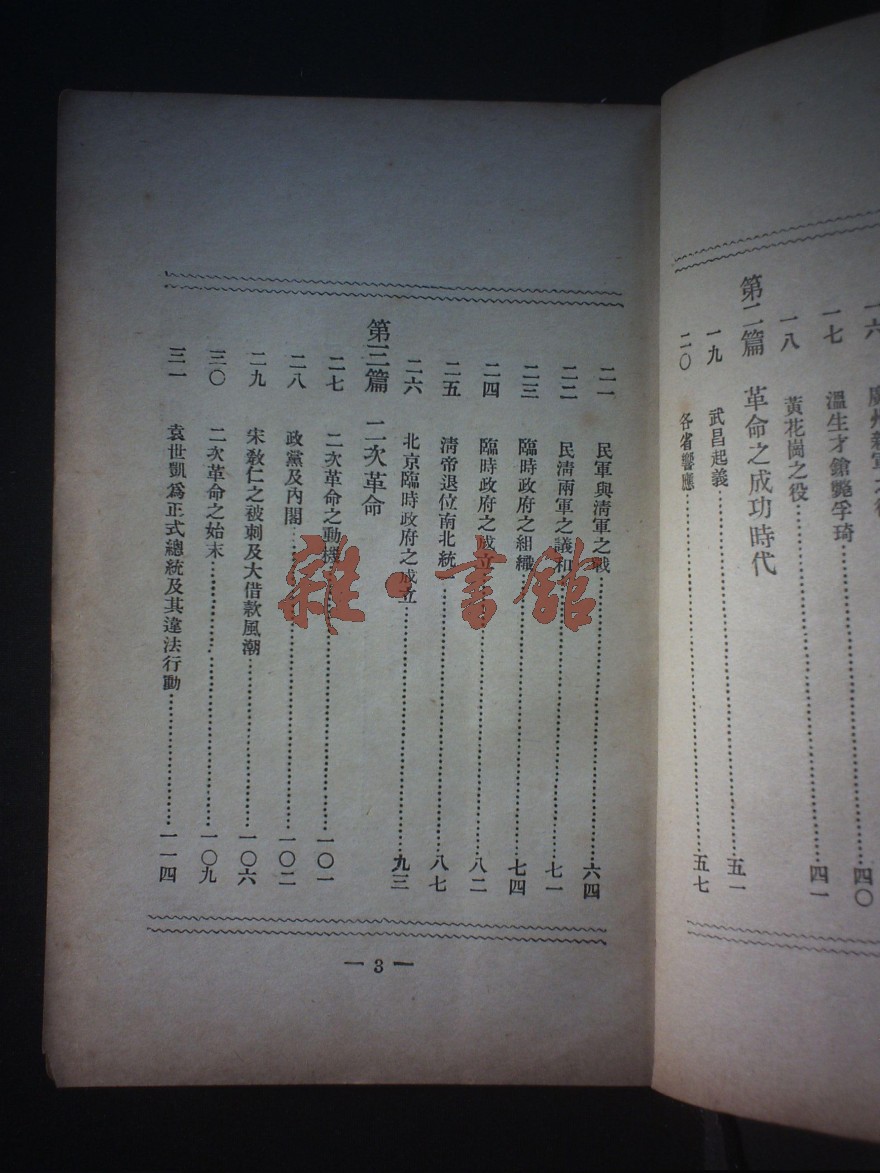 一六
一七 溫生才鎗斃孚琦 四〇
一八 黃花崗之役 四一
第二篇 革命之成功時代
一九 武昌起義 五一
二〇 各省響應 五七
二一 民軍與淸軍之戰 六四
二二 民淸兩軍之議和 七一
二三 臨時政府之組織 七四
二四 臨時政府之成立 八二
二五 淸帝退位南北統一 八七
二六 北京臨時政府之成立 九三
第三篇 二次革命
二七 二次革命之動機 一〇一
二八 政黨及內閣 一〇二
二九 宋敎仁之被刺及大借款風潮 一〇六
三〇 二次革命之始末 一〇九
三一 袁世凱爲正式總統及其違法行動 一一四
— 3 —
雜·書館